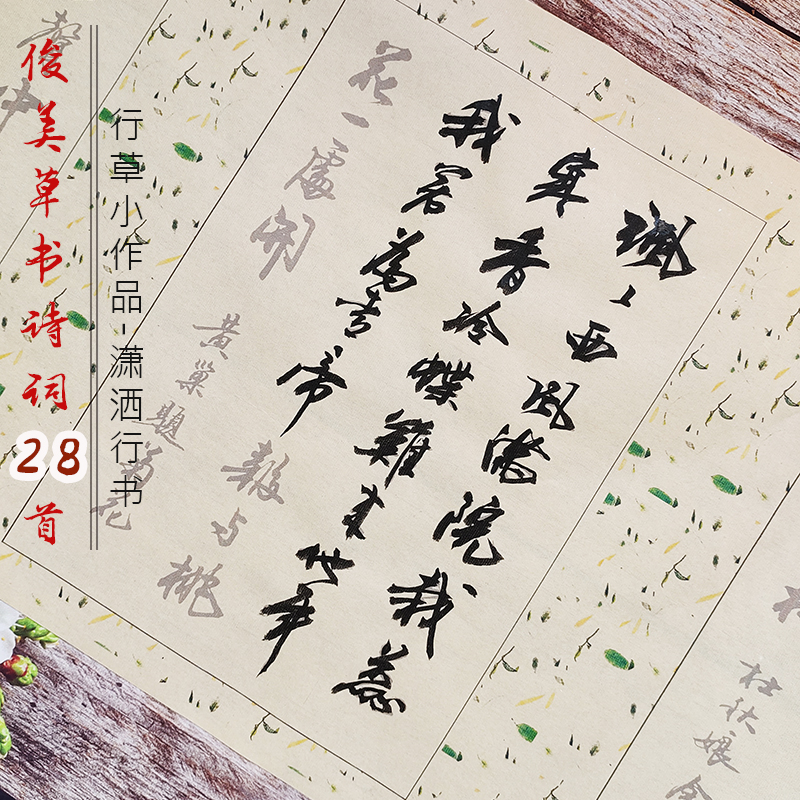 俊美草书诗词28首
行草小作品-潇洒行书
颯々西風滿院栽蕊
寒香冷蝶難来他年
我若為青帝報与桃
花一處開
黄巢題菊花
杜秋娘金